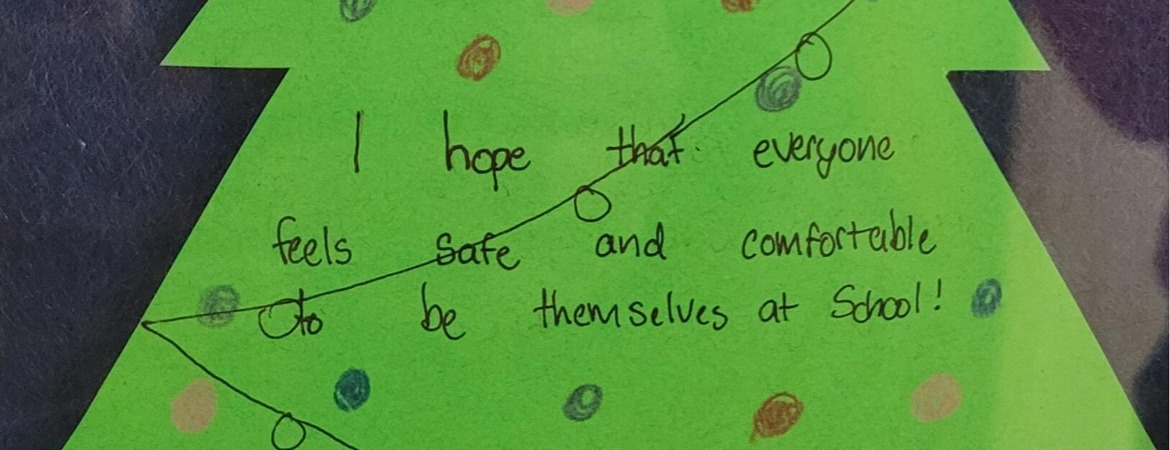 I hope that everyone
feels safe and comfortable
to be themselves at School!